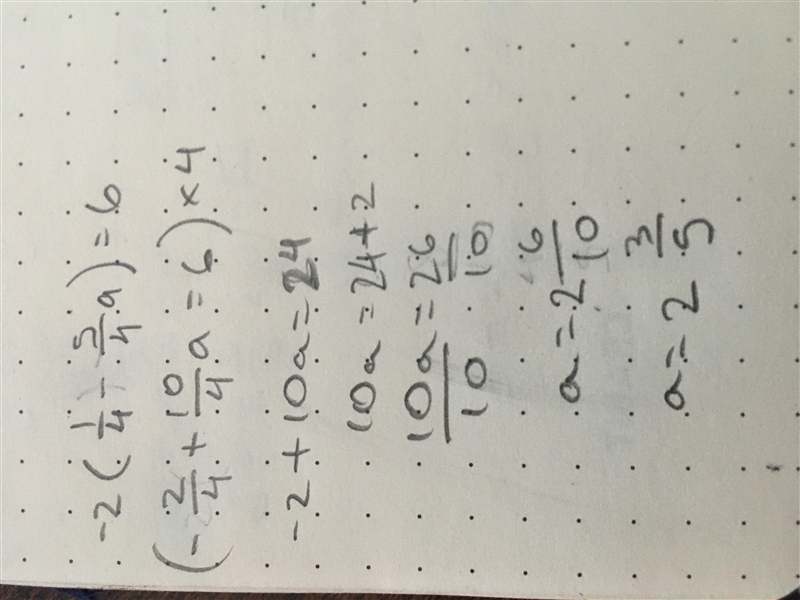 -2(1/4 - 5/4 a) = 6
(-2/4 + 10/4 a = 6) × 4
-2 + 10a = 24
10a = 24 + 2
10a/10 = 26/10
a = 2 6/10
a = 2 3/5